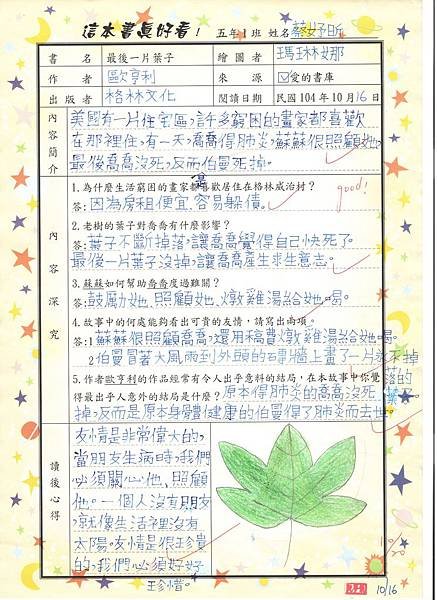 這本書真好看! 五年1班 姓名 蔡妤昕
書名 最後一片葉子 繪圖者 瑪琳娜
作者 歐亨利 來源 ☑愛的書庫
出版者 格林文化 閱讀日期 民國104年10月16日
內容簡介
美國有一片住宅區,許多窮困的畫家都喜歡
在那裡住,有一天,喬喬得肺炎,蘇蘇很照顧她,
最後喬喬沒死,反而伯曼死掉。
內容深究
1.為什麼生活窮困的畫家都喜歡居住在格林威治村?
答:因為房租便宜、容易躲債。
good!
2.老樹的葉子對喬喬有什麼影響?
答:葉子不斷掉落,讓喬喬覺得自己快死了。
最後一片葉子沒掉,讓喬喬產生求生意志。
3.蘇蘇如何幫助喬喬度過難關?
答:鼓勵她、照顧她、燉雞湯給她喝。
4.故事中的何處能夠看出可貴的友情,請寫出兩項。
答:1蘇蘇很照顧喬喬,還用稿費燉雞湯給她喝。
2伯曼冒著大風雨到外頭的磚牆上畫了一片不掉落的葉
5.作者歐亨利的作品經常有令人出乎意料的結局,在本故事中你覺
得最出乎人意外的結局是什麼?原本得肺炎的喬喬沒死
掉,反而是原本身體健康的伯曼得了肺炎而去世。
讀後心得
友情是非常偉大的,
當朋友生病時,我們
必須關心他、照顧
他。一個人沒有朋友
就像生活裡沒有
太陽。友情是很珍貴
的,我們必須好好
珍惜。
10/20
10/16